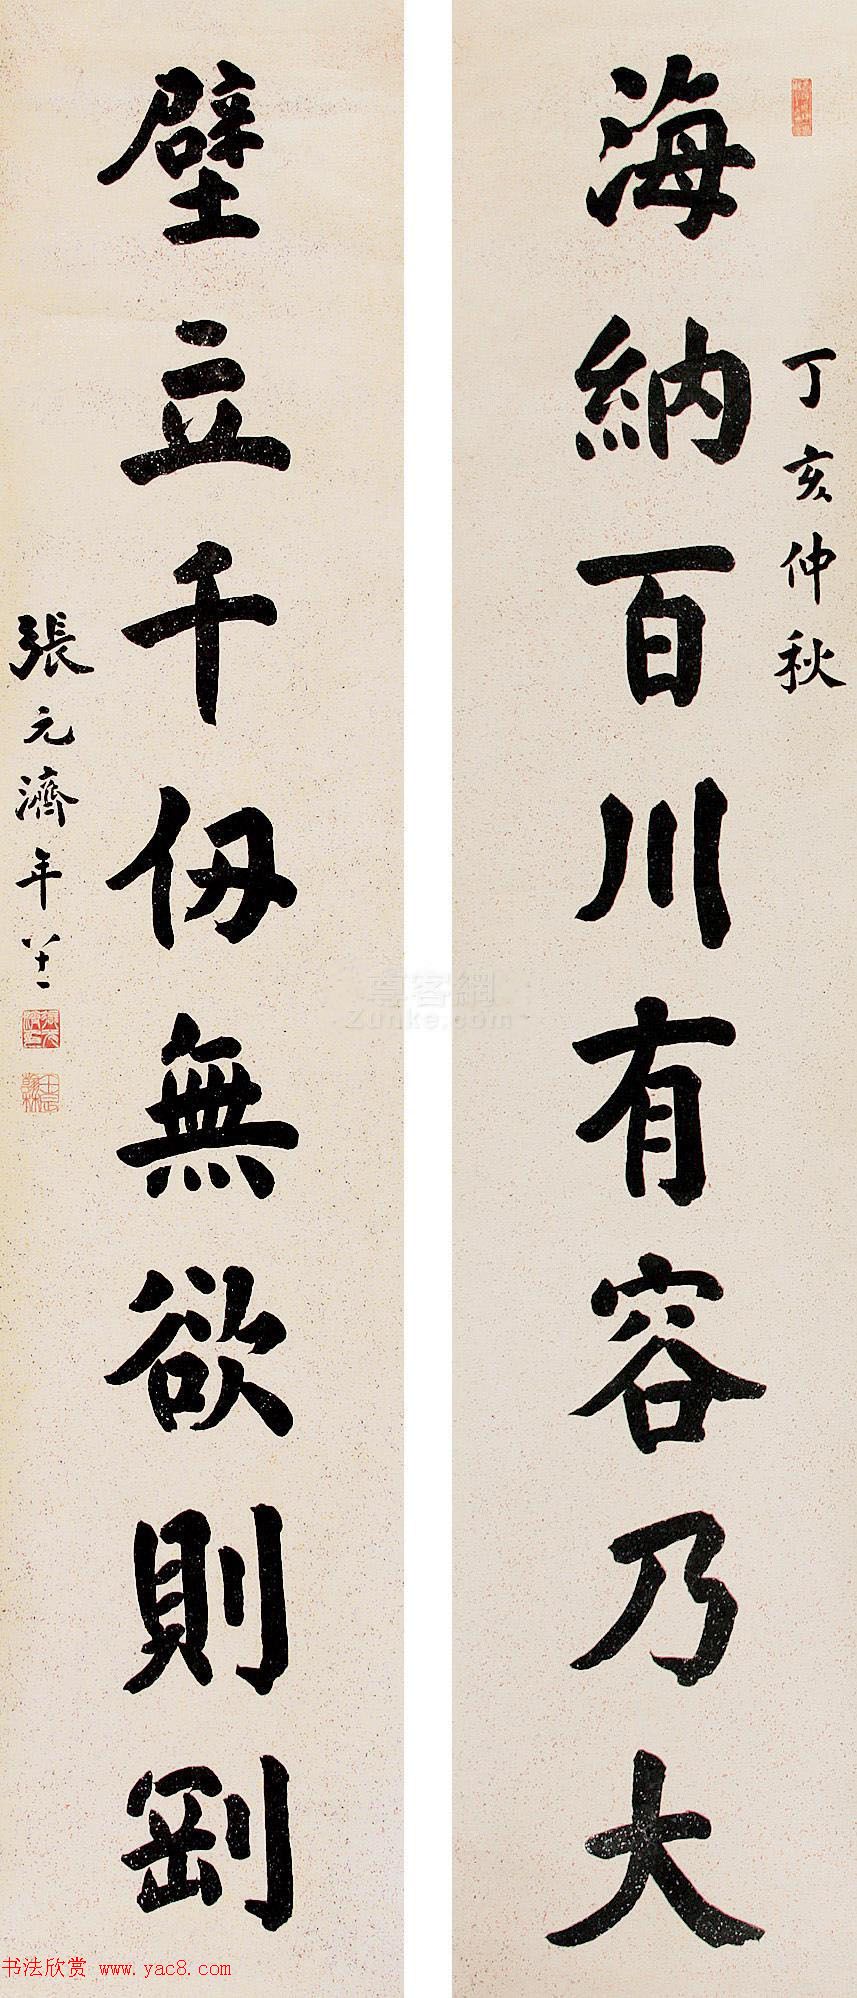 海納百川有容乃大
丁亥仲秋
壁立千仞無欲則剛
張元濟年八十一
尊客網
Zunke.com
书法欣赏 www.yac8.com